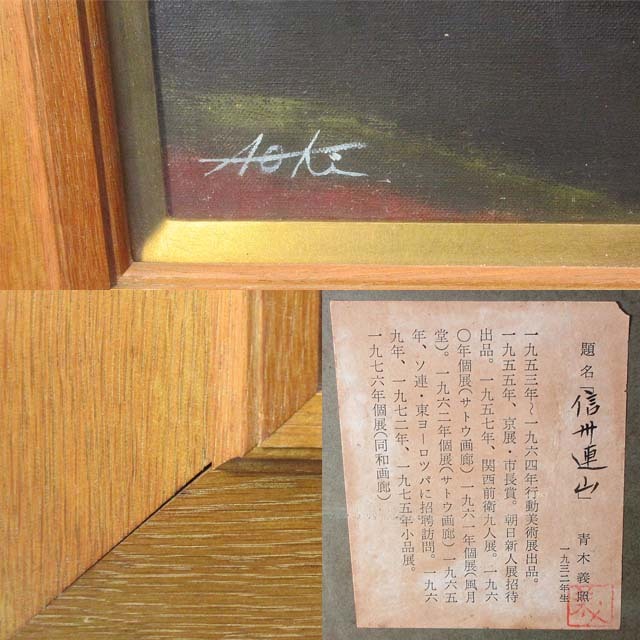 Aoki
題名「信州連山」 青木義照
一九三二年生
一九五三年～一九六四年行動美術展出品。
一九五五年、京展・市長賞。朝日新人展招待
出品。一九五七年、関西前衛九人展。一九六
〇年個展(サトウ画廊)一九六一年個展(風月
堂)。一九六二年個展(サトウ画廊)一九六五
年、ソ連・東ヨーロツパに招聘訪問。一九六
九年、一九七二年、一九七五年小品展。
一九七六年個展(同和画廊)